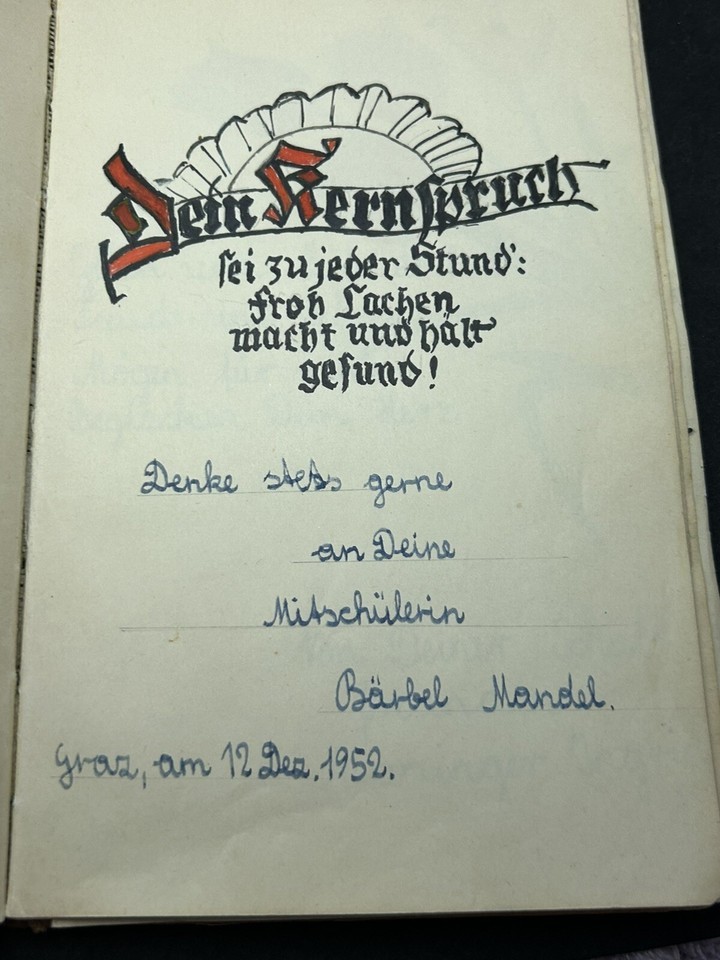 Dein Kernspruch
sei zu jeder Stund':
Froh Lachen
macht und hält
gesund!
Denke stets gerne
an Deine
Mitschülerin
Bärbel Mandel.
Graz, am 12 Dez. 1952.